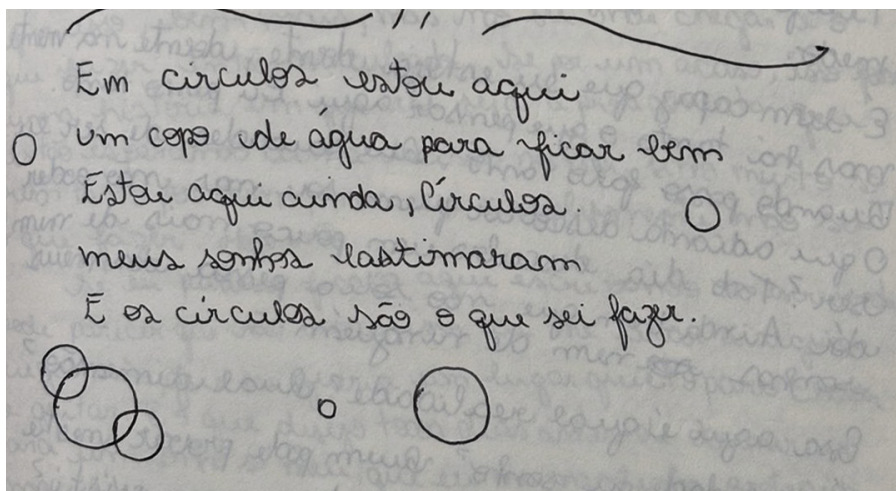 Em círculos estou aqui
um copo de água para ficar bem
Estou aqui ainda, Círculos.
meus sonhos lastimaram
E os círculos são o que sei fazer.